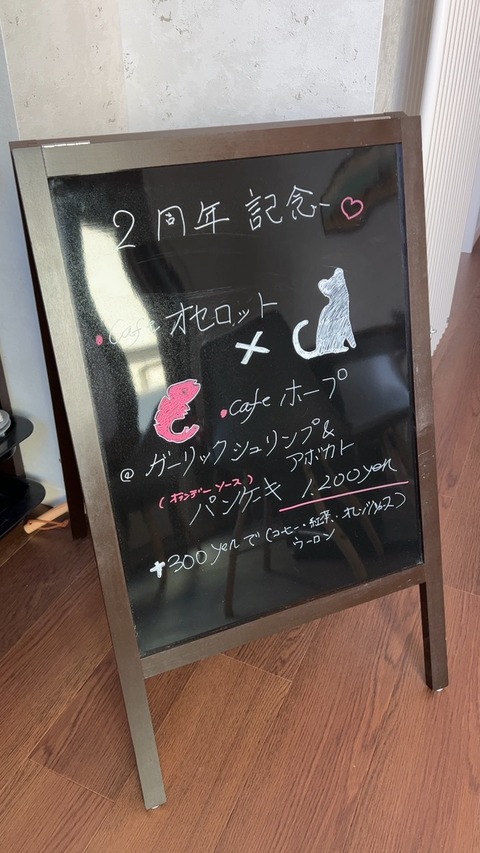 2周年 記念ー♡
・cafe オセロット
×
・cafe ホープ
@ ガーリックシュリンプ&
アボカト
(オランデーソース)
パンケーキ 1.200yen
+300yenで(コーヒー・紅茶・オレンジジュース)
ウーロン